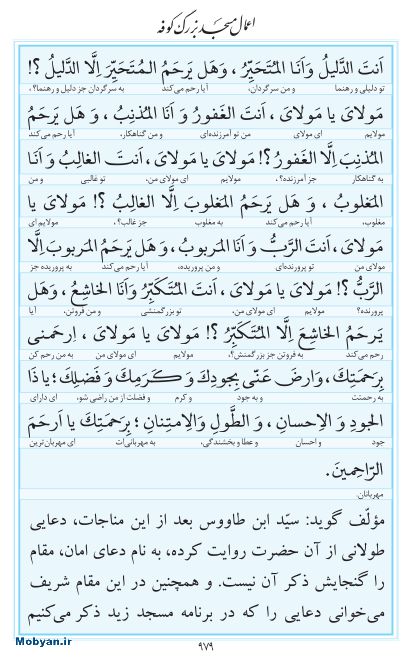 اعمال مسجد بزرگ کوفه
اَنتَ الدَّلیلُ وَاَنَا المُتَحَیِّرُ ، وَهَل یَرحَمُ المُتَحَیِّرَ اِلَّا الدَّلیلُ ؟!
تو دلیلی و رهنما و من سرگردان، آیا رحم می‌کند به سرگردان جز دلیل و رهنما؟،
مَولایَ یا مَولایَ ، اَنتَ الغَفورُ وَ اَنَا المُذنِبُ ، وَ هَل یَرحَمُ
مولایم ای مولای من تو آمرزنده‌ای و من گناهکار، آیا رحم می‌کند
المُذنِبَ اِلَّا الغَفورُ؟! مَولایَ یا مَولایَ ، اَنتَ الغالِبُ وَ اَنَا
به گناهکار جز آمرزنده؟، مولایم ای مولای من، تو غالبی و من
المَغلوبُ ، وَ هَل یَرحَمُ المَغلوبَ اِلَّا الغالِبُ ؟! مَولایَ یا
مغلوب، آیا رحم می‌کند به مغلوب جز غالب؟، مولایم ای
مَولایَ ، اَنتَ الرَّبُّ وَ اَنَا المَربوبُ، وَ هَل یَرحَمُ المَربوبَ اِلَّا
مولای من تو پرورنده‌ای و من پروریده، آیا رحم می‌کند به پروریده جز
الرَّبُّ ؟! مَولایَ یا مَولایَ ، اَنتَ المُتَکَبِّرُ وَاَنَا الخاشِعُ ، وَهَل
پرورنده؟ مولایم ای مولای من، تو بزرگمنشی و من فروتن، آیا
یَرحَمُ الخاشِعَ اِلَّا المُتَکَبِّرُ ؟! مَولایَ یا مَولایَ ، اِرحَمنی
رحم می‌کند به فروتن جز بزرگمنش؟، مولایم ای مولای من به من رحم کن
بِرَحمَتِکَ ، وَارضَ عَنّی بِجودِکَ وَ کَرَمِکَ وَ فَضلِکَ ؛ یا ذَا
به رحمتت و به جود و کرم و فضلت از من راضی شو، ای دارای
الجودِ وَ الاِحسانِ ، وَ الطَّولِ وَالاِمتِنانِ ؛ بِرَحمَتِکَ یا اَرحَمَ
جود و احسان و عطا و بخشندگی، به مهربانی‌ات ای مهربان‌ترین
الرّاحِمینَ.
مهربانان.
مؤلّف گوید: سیّد ابن طاووس بعد از این مناجات، دعایی
طولانی از آن حضرت روایت کرده، به نام دعای امان، مقام
را گنجایش ذکر آن نیست. و همچنین در این مقام شریف
می‌خوانی دعایی را که در برنامه مسجد زید ذکر می‌کنیم
Mobyan.ir
۹۷۹